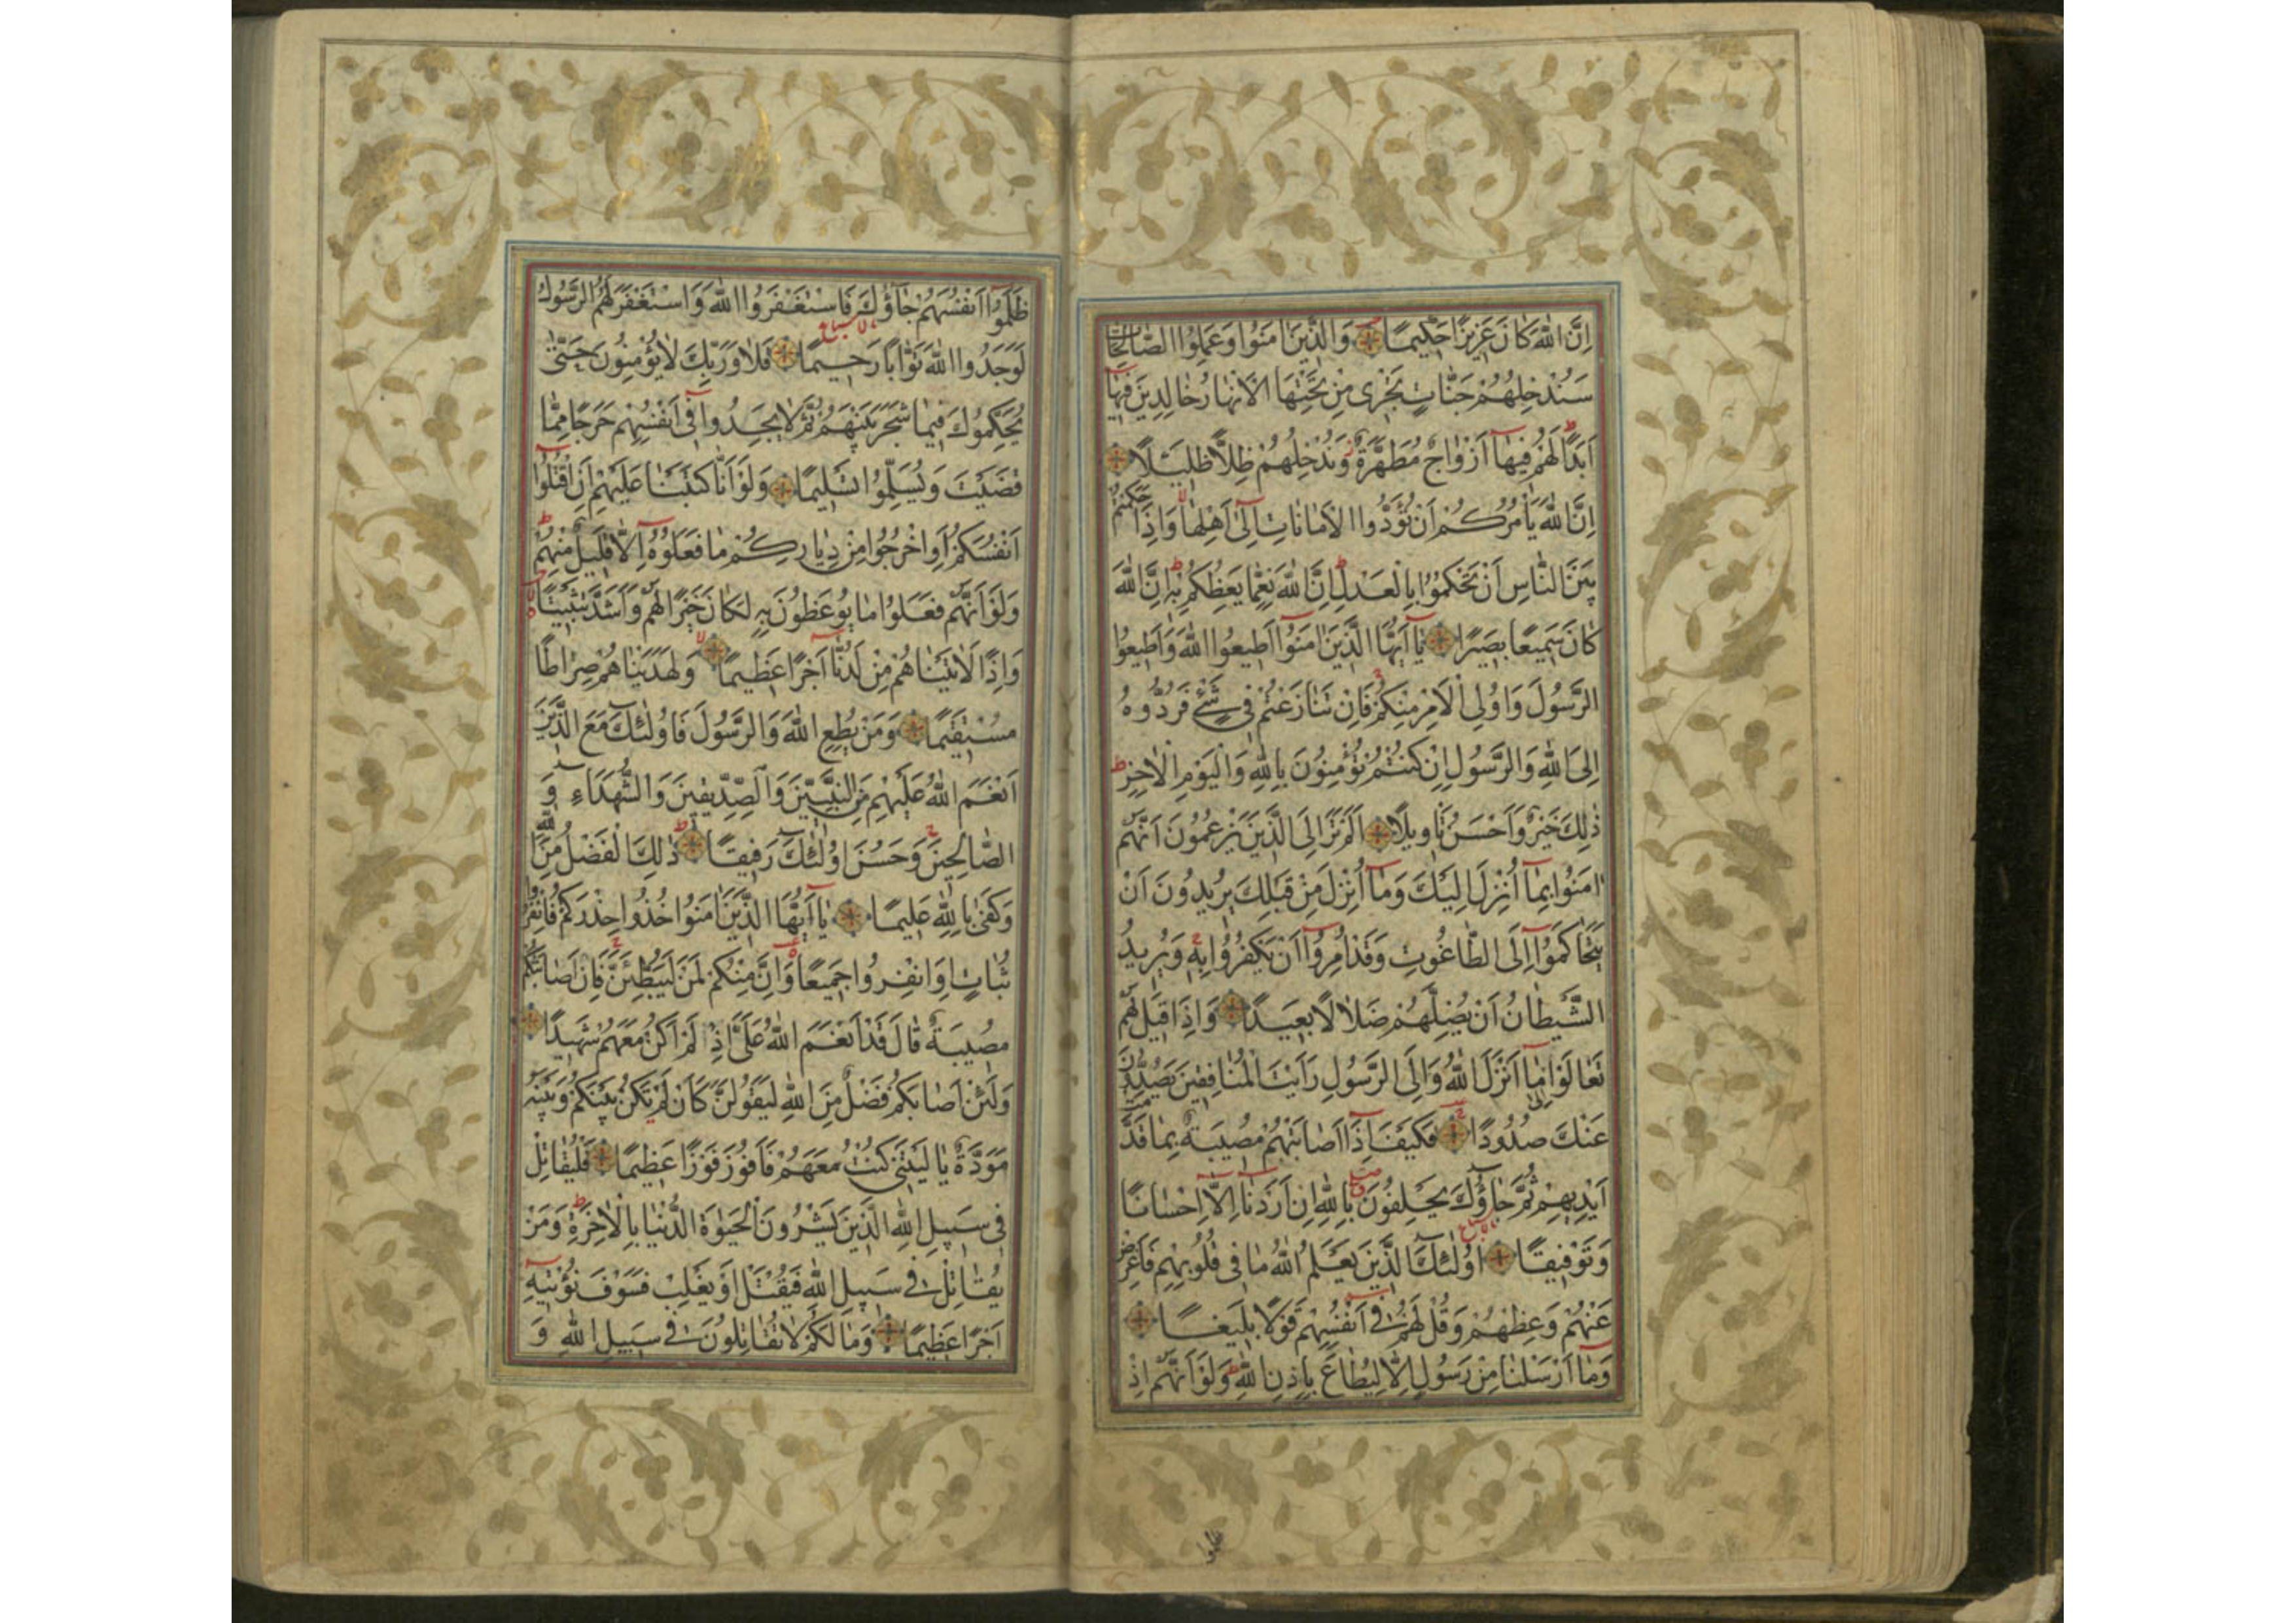 اِنَّ اللّٰهَ كَانَ عَزِيزًا حَكِيمًا وَالَّذِينَ اٰمَنُوا وَعَمِلُوا الصَّالِحَاتِ
سَنُدْخِلُهُمْ جَنَّاتٍ تَجْرِى مِنْ تَحْتِهَا الْاَنْهَارُ خَالِدِينَ فِيهَا
اَبَدًا لَهُمْ فِيهَا اَزْوَاجٌ مُطَهَّرَةٌ وَنُدْخِلُهُمْ ظِلًّا ظَلِيلًا
اِنَّ اللّٰهَ يَاْمُرُكُمْ اَنْ تُؤَدُّوا الْاَمَانَاتِ اِلٰى اَهْلِهَا وَاِذَا حَكَمْتُمْ
بَيْنَ النَّاسِ اَنْ تَحْكُمُوا بِالْعَدْلِ اِنَّ اللّٰهَ نِعِمَّا يَعِظُكُمْ بِهِ اِنَّ اللّٰهَ
كَانَ سَمِيعًا بَصِيرًا يَا اَيُّهَا الَّذِينَ اٰمَنُوا اَطِيعُوا اللّٰهَ وَاَطِيعُوا
الرَّسُولَ وَاُولِى الْاَمْرِ مِنْكُمْ فَاِنْ تَنَازَعْتُمْ فِى شَىْءٍ فَرُدُّوهُ
اِلَى اللّٰهِ وَالرَّسُولِ اِنْ كُنْتُمْ تُؤْمِنُونَ بِاللّٰهِ وَالْيَوْمِ الْاٰخِرِ
ذٰلِكَ خَيْرٌ وَاَحْسَنُ تَاْوِيلًا اَلَمْ تَرَ اِلَى الَّذِينَ يَزْعُمُونَ اَنَّهُمْ
اٰمَنُوا بِمَا اُنْزِلَ اِلَيْكَ وَمَا اُنْزِلَ مِنْ قَبْلِكَ يُرِيدُونَ اَنْ
يَتَحَاكَمُوا اِلَى الطَّاغُوتِ وَقَدْ اُمِرُوا اَنْ يَكْفُرُوا بِهِ وَيُرِيدُ
الشَّيْطَانُ اَنْ يُضِلَّهُمْ ضَلَالًا بَعِيدًا وَاِذَا قِيلَ لَهُمْ
تَعَالَوْا اِلٰى مَا اَنْزَلَ اللّٰهُ وَاِلَى الرَّسُولِ رَاَيْتَ الْمُنَافِقِينَ يَصُدُّونَ
عَنْكَ صُدُودًا فَكَيْفَ اِذَا اَصَابَتْهُمْ مُصِيبَةٌ بِمَا قَدَّمَتْ
اَيْدِيهِمْ ثُمَّ جَاؤُكَ يَحْلِفُونَ بِاللّٰهِ اِنْ اَرَدْنَا اِلَّا اِحْسَانًا
وَتَوْفِيقًا اُولٰئِكَ الَّذِينَ يَعْلَمُ اللّٰهُ مَا فِى قُلُوبِهِمْ فَاَعْرِضْ
عَنْهُمْ وَعِظْهُمْ وَقُلْ لَهُمْ فِى اَنْفُسِهِمْ قَوْلًا بَلِيغًا
وَمَا اَرْسَلْنَا مِنْ رَسُولٍ اِلَّا لِيُطَاعَ بِاِذْنِ اللّٰهِ وَلَوْ اَنَّهُمْ اِذْ
ظلموا
ظَلَمُوا اَنْفُسَهُمْ جَاؤُكَ فَاسْتَغْفَرُوا اللّٰهَ وَاسْتَغْفَرَ لَهُمُ الرَّسُولُ
لَوَجَدُوا اللّٰهَ تَوَّابًا رَحِيمًا فَلَا وَرَبِّكَ لَا يُؤْمِنُونَ حَتّٰى
يُحَكِّمُوكَ فِيمَا شَجَرَ بَيْنَهُمْ ثُمَّ لَا يَجِدُوا فِى اَنْفُسِهِمْ حَرَجًا مِمَّا
قَضَيْتَ وَيُسَلِّمُوا تَسْلِيمًا وَلَوْ اَنَّا كَتَبْنَا عَلَيْهِمْ اَنِ اقْتُلُوا
اَنْفُسَكُمْ اَوِ اخْرُجُوا مِنْ دِيَارِكُمْ مَا فَعَلُوهُ اِلَّا قَلِيلٌ مِنْهُمْ
وَلَوْ اَنَّهُمْ فَعَلُوا مَا يُوعَظُونَ بِهِ لَكَانَ خَيْرًا لَهُمْ وَاَشَدَّ تَثْبِيتًا
وَاِذًا لَاٰتَيْنَاهُمْ مِنْ لَدُنَّا اَجْرًا عَظِيمًا وَلَهَدَيْنَاهُمْ صِرَاطًا
مُسْتَقِيمًا وَمَنْ يُطِعِ اللّٰهَ وَالرَّسُولَ فَاُولٰئِكَ مَعَ الَّذِينَ
اَنْعَمَ اللّٰهُ عَلَيْهِمْ مِنَ النَّبِيِّينَ وَالصِّدِّيقِينَ وَالشُّهَدَاءِ وَ
الصَّالِحِينَ وَحَسُنَ اُولٰئِكَ رَفِيقًا ذٰلِكَ الْفَضْلُ مِنَ اللّٰهِ
وَكَفٰى بِاللّٰهِ عَلِيمًا يَا اَيُّهَا الَّذِينَ اٰمَنُوا خُذُوا حِذْرَكُمْ فَانْفِرُوا
ثُبَاتٍ اَوِ انْفِرُوا جَمِيعًا وَاِنَّ مِنْكُمْ لَمَنْ لَيُبَطِّئَنَّ فَاِنْ اَصَابَتْكُمْ
مُصِيبَةٌ قَالَ قَدْ اَنْعَمَ اللّٰهُ عَلَىَّ اِذْ لَمْ اَكُنْ مَعَهُمْ شَهِيدًا
وَلَئِنْ اَصَابَكُمْ فَضْلٌ مِنَ اللّٰهِ لَيَقُولَنَّ كَاَنْ لَمْ تَكُنْ بَيْنَكُمْ وَبَيْنَهُ
مَوَدَّةٌ يَا لَيْتَنِى كُنْتُ مَعَهُمْ فَاَفُوزَ فَوْزًا عَظِيمًا فَلْيُقَاتِلْ
فِى سَبِيلِ اللّٰهِ الَّذِينَ يَشْرُونَ الْحَيٰوةَ الدُّنْيَا بِالْاٰخِرَةِ وَمَنْ
يُقَاتِلْ فِى سَبِيلِ اللّٰهِ فَيُقْتَلْ اَوْ يَغْلِبْ فَسَوْفَ نُؤْتِيهِ
اَجْرًا عَظِيمًا وَمَا لَكُمْ لَا تُقَاتِلُونَ فِى سَبِيلِ اللّٰهِ وَ